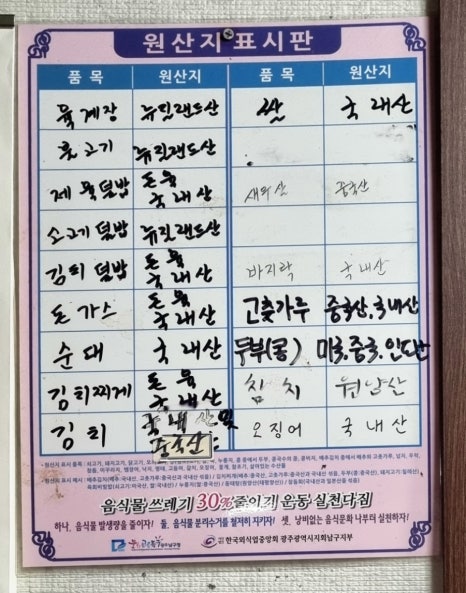 원산지 표시판
품 목 원산지 품 목 원산지
육계장 뉴질랜드산 쌀 국내산
불고기 뉴질랜드산
제육덮밥 돈육 국내산 새우살 중국산
소고기덮밥 뉴질랜드산
김치덮밥 돈육 국내산 바지락 국내산
돈가스 돈육 국내산 고춧가루 중국산,국내산
순대 국내산 두부(콩) 미국,중국,인도산
김치찌게 돈육 국내산 참치 원양산
김치 국내산 및 중국산 오징어 국내산
음식물 쓰레기 30%줄이기 운동 실천다짐
하나, 음식물 발생량을 줄이자! 둘, 음식물 분리수거를 철저히 지키자! 셋, 낭비없는 음식문화 나부터 실천하자!
한국외식업중앙회 광주광역시지회남구지부